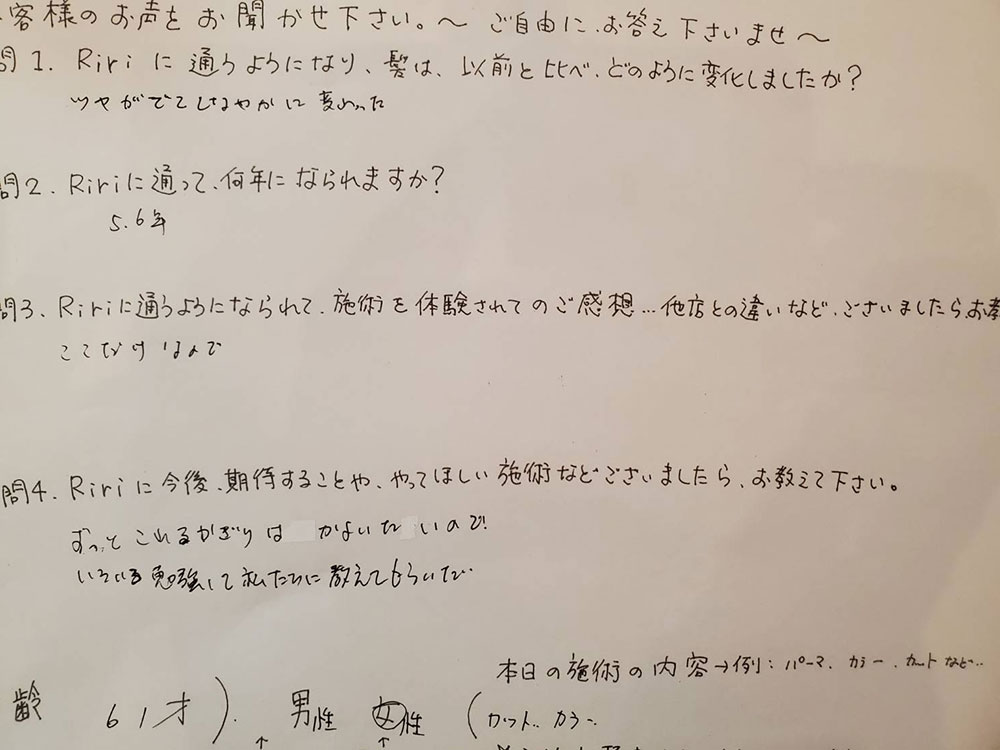 客様のお声をお聞かせ下さい。〜 ご自由に、お答え下さいませ〜
問1. Ririに通うようになり、髪は、以前と比べ、どのように変化しましたか?
ツヤがでてしなやかに変わった
問2. Ririに通って、何年になられますか?
5.6年
問3. Ririに通うようになられて、施術を体験されてのご感想…他店との違いなど、ございましたら、お教
ここだけなので
問4. Ririに今後、期待することや、やってほしい施術などございましたら、お教えて下さい。
ずっとこれるかぎりは かよいたいので!
いろいろ勉強して私たちに教えてもらいたい
本日の施術の内容→例: パーマ、カラー、カットなど…
齢 61才). 男性 女性 (カット、カラー
↑ ↑